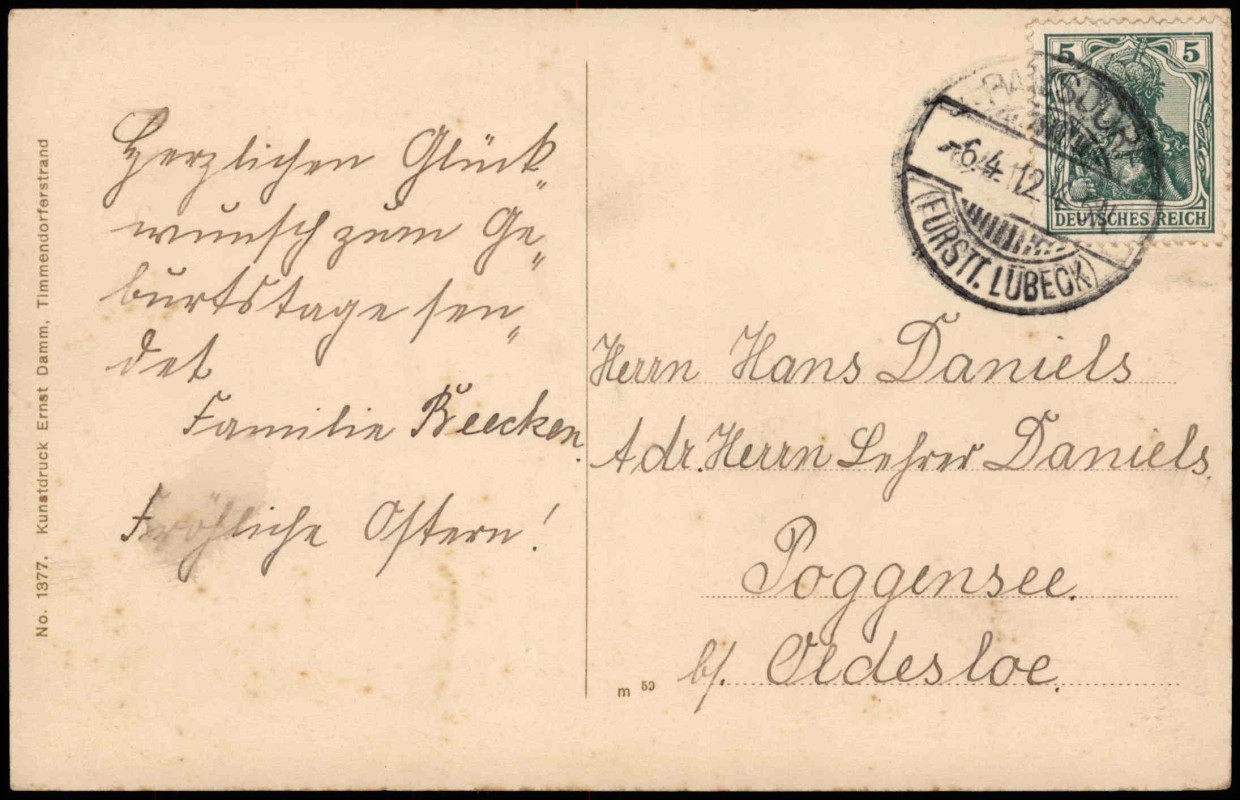 No. 1377. Kunstdruck Ernst Damm, Timmendorferstrand
Herzlichen Glück„
wunsch zum Ge„
burtstage sen„
det
Familie Beecken.
Fröhliche Ostern!
5 5
DEUTSCHES REICH
-6.4.12
(FÜRSTT. LÜBECK)
Herrn Hans Daniels
Adr. Herrn Lehrer Daniels.
Poggensee.
b/. Oldesloe.
m 59